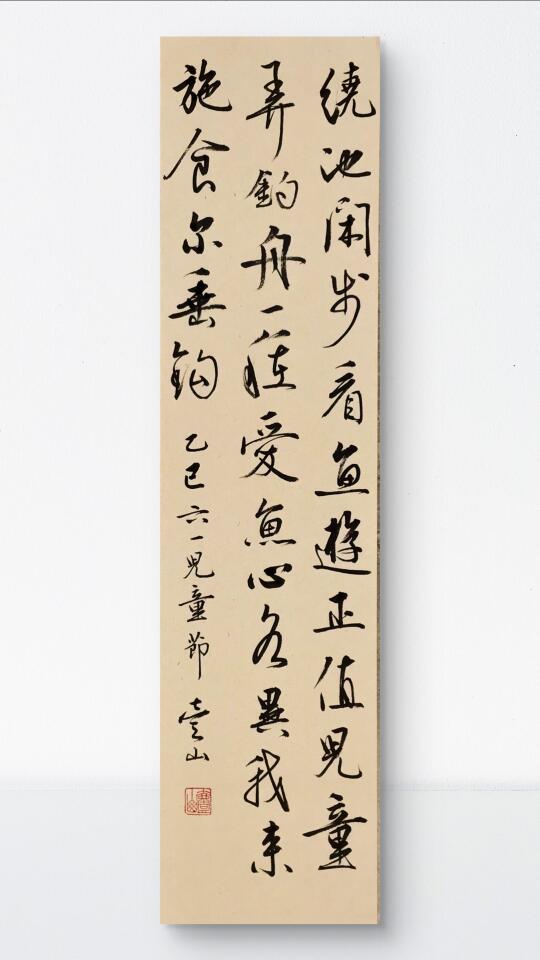 繞池閑步看魚遊正值兒童
弄釣舟一種愛魚心各異我来
施食尔垂鈎 乙巳六一兒童節 山